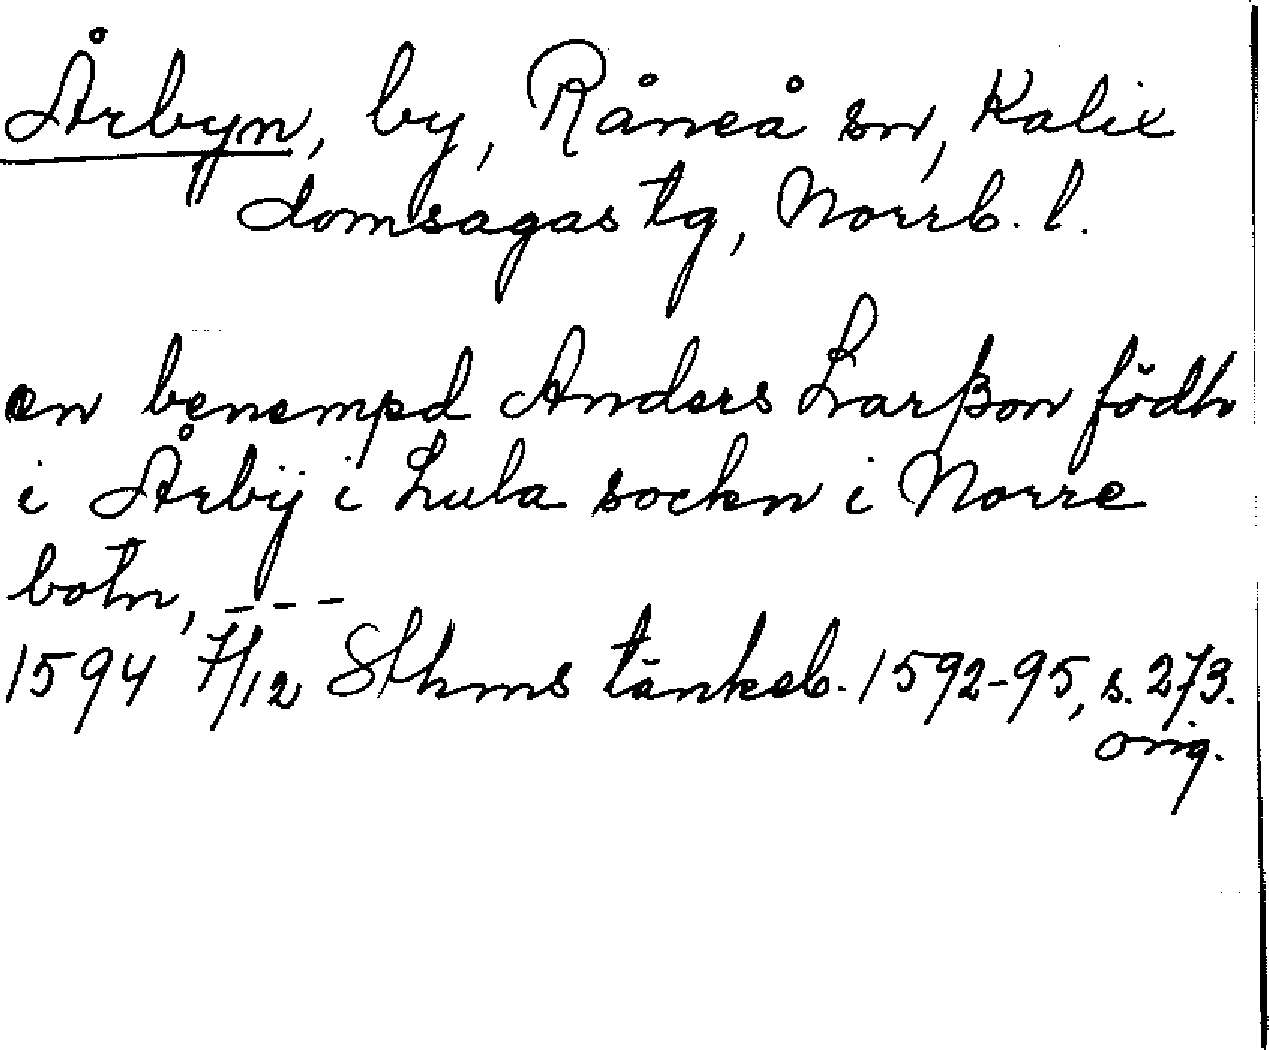 Årbyn, by, Råneå sn, Kalix
domsagas tg, Norrb. l.
en benempd Anders Larßon födh
i Årbÿ i Lula sockn i Norre
botn, ---
1594 7/12 Sthms tänkeb. 1592-95, s. 273.
orig.